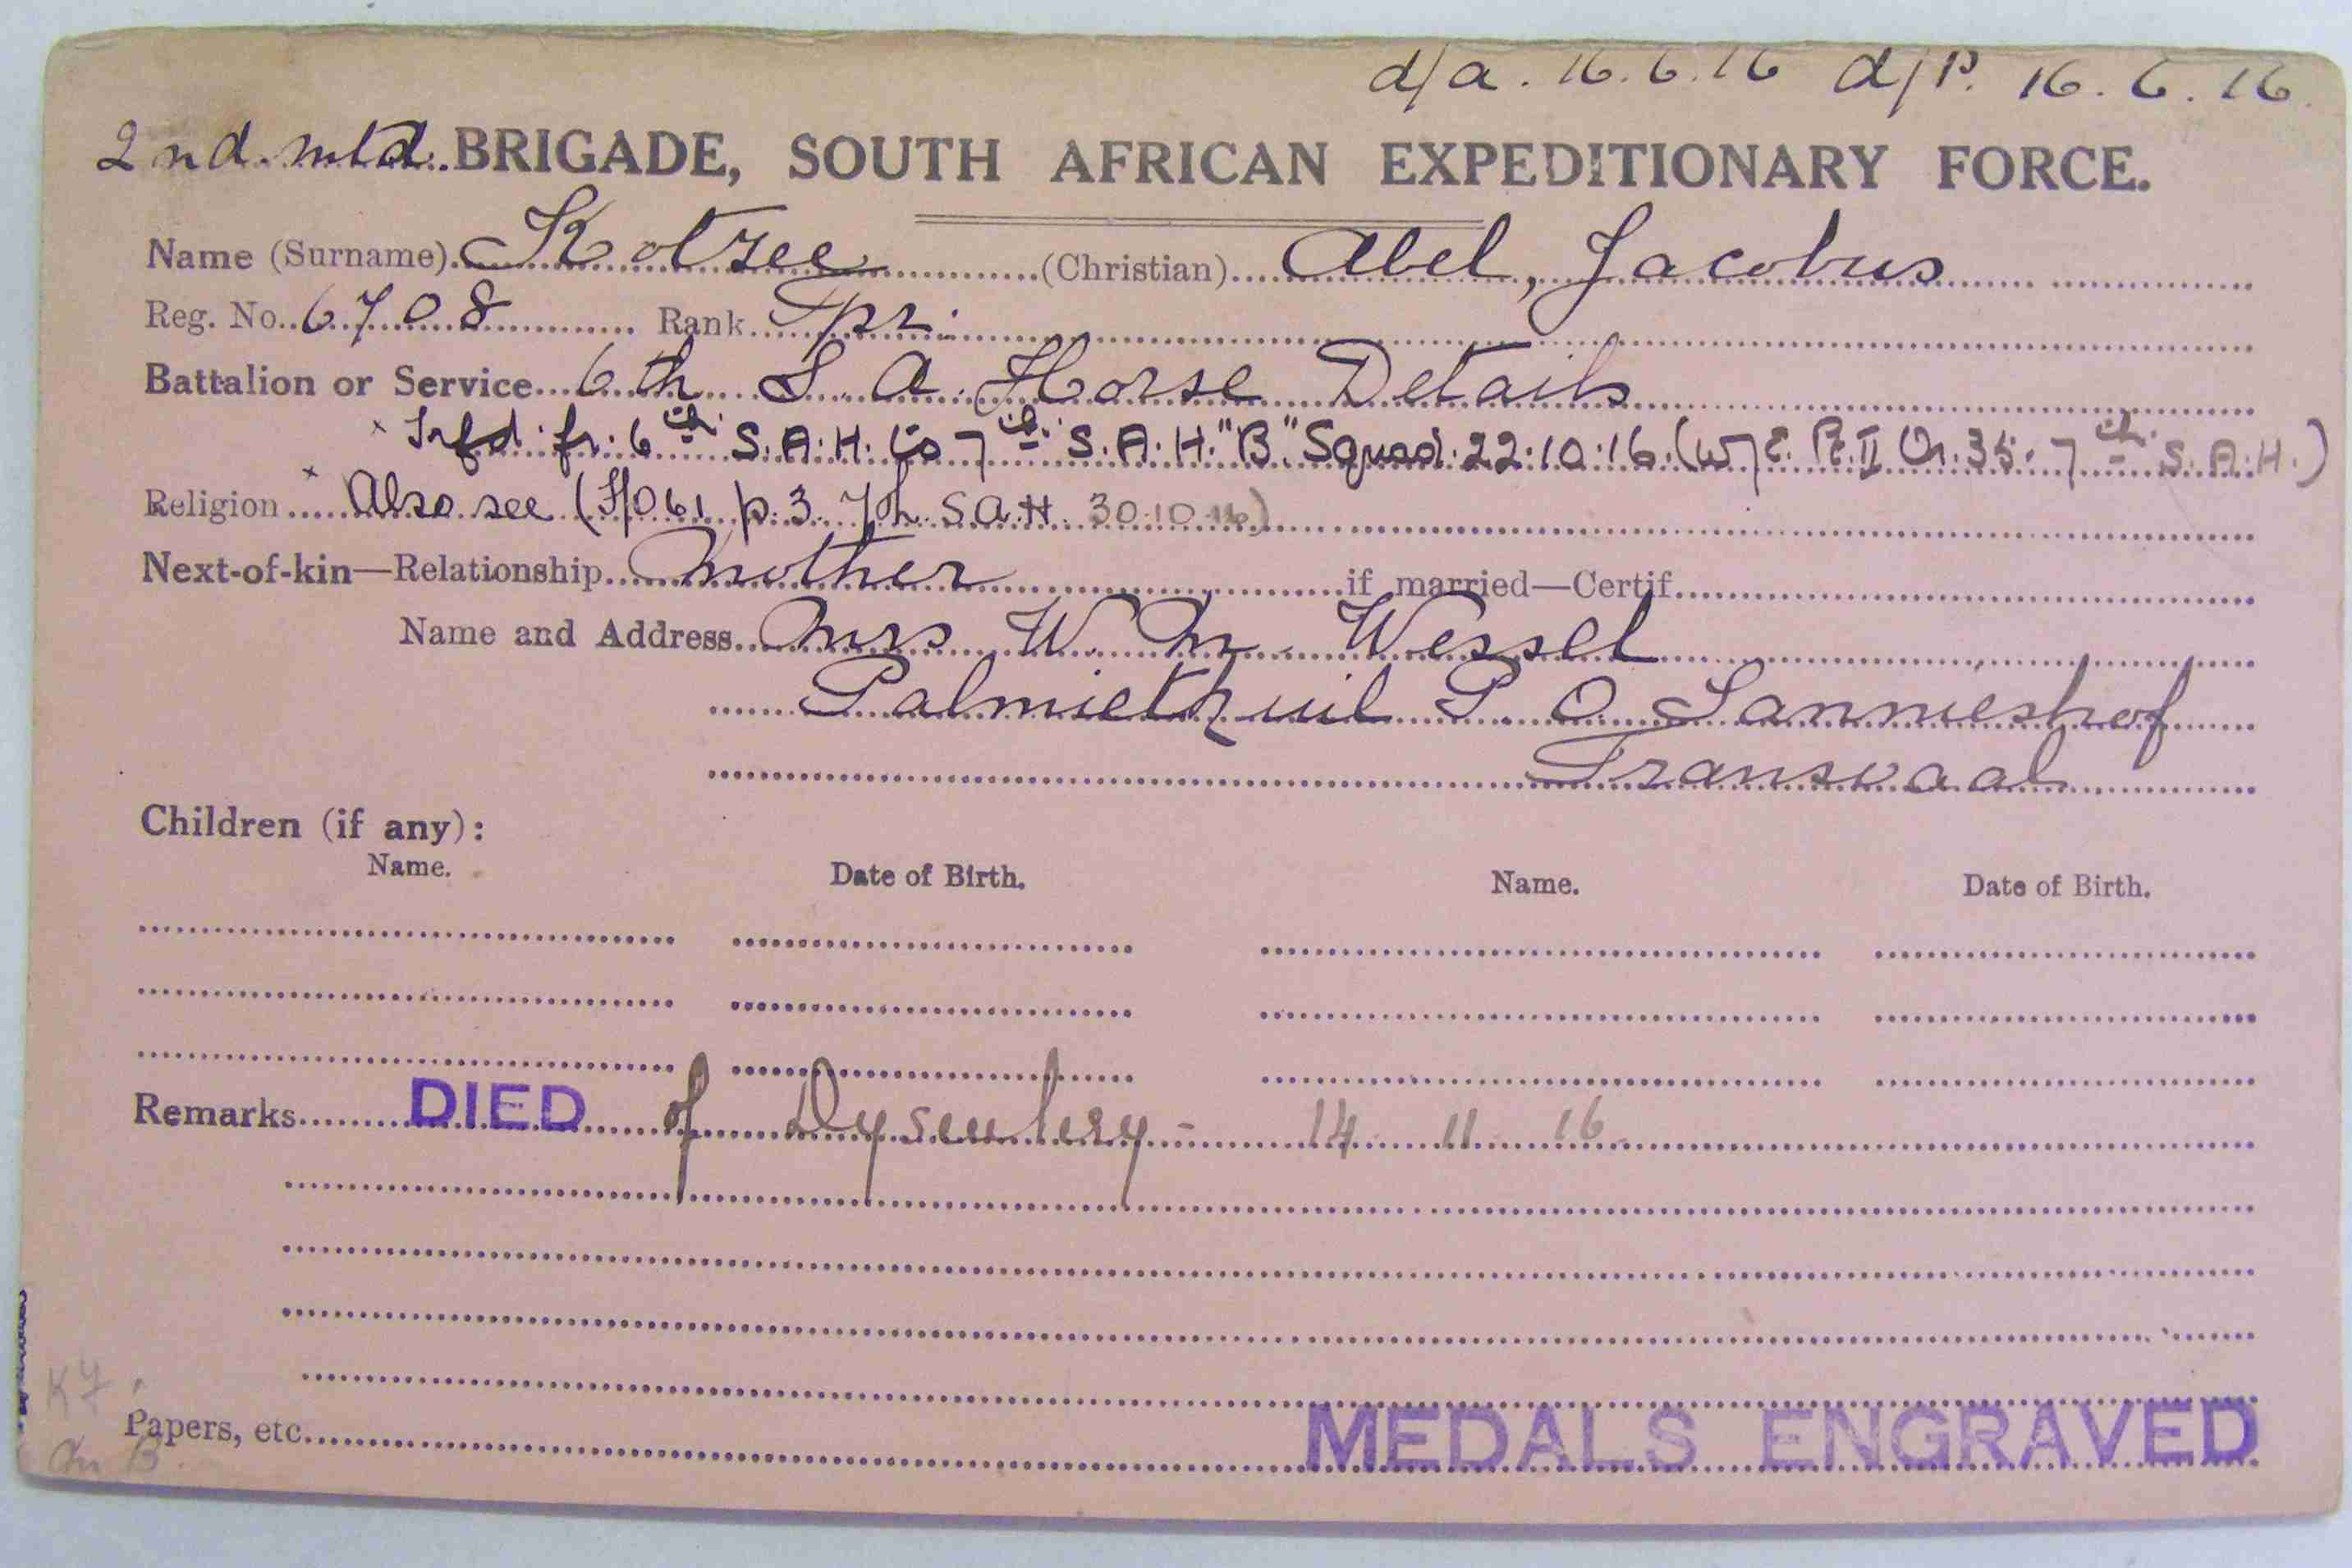 d/a. 16.6.16 d/P. 16.6.16.
2nd. mtd. BRIGADE, SOUTH AFRICAN EXPEDITIONARY FORCE.
Name (Surname) Kotzee (Christian) Abel, Jacobus
Reg. No. 6708 Rank Tpr.
Battalion or Service 6th S. A. Horse Details
x Trfd. fr. 6th S.A.H. to 7th S.A.H. "B" Squad. 22.10.16. (W7E. Pt. II Or. 35. 7th S.A.H.)
Religion x Also see (H/O 61 p. 3 7th S.A.H. 30.10.16)
Next-of-kin—Relationship Mother if married—Certif.
Name and Address Mrs W. M. Wessel
Palmietkuil P. O. Sannieshof
Transvaal
Children (if any):
Name. Date of Birth. Name. Date of Birth.
Remarks DIED of Dysentery - 14 11 16.
K7
Papers, etc. MEDALS ENGRAVED
B.